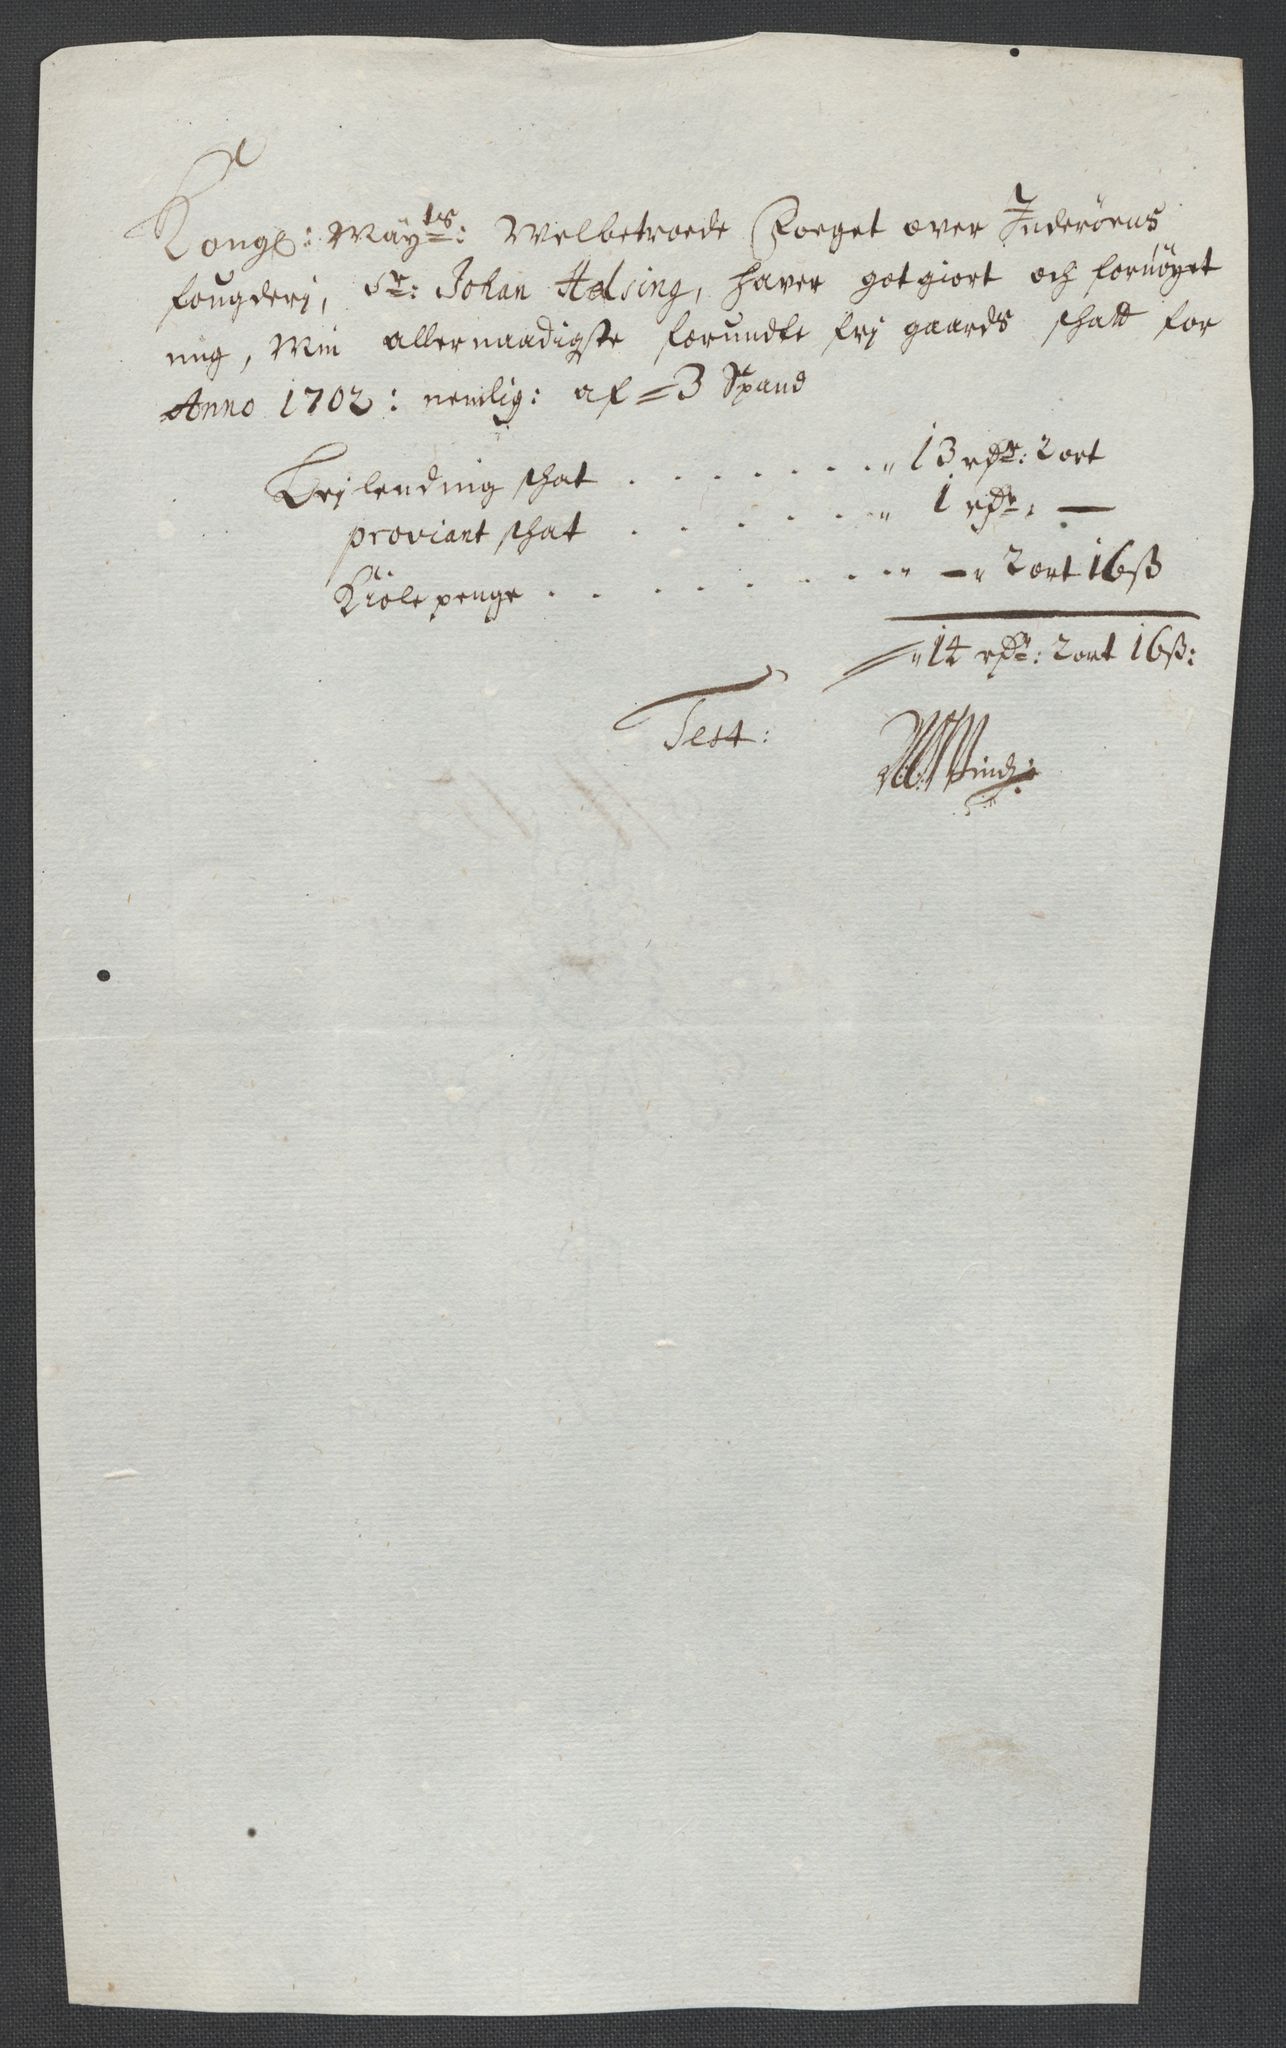 Kongl: Mayts: Welbetroede Foeget over Inderöens
fougderj, Sr: Johan Helsing, haver gotgiort och fornöyet
mig, Min allernaadigste forundte frj gaards schatt for
Anno 1702: nemlig: af = 3 Spand
Leylending schat . . . . . . . " 13 rdr: 2 ort
proviant schat . . . . . . . " 1 rdr: —
Kiole penge . . . . . . . . . " — " 2 ort 16 ß
" 14 rdr: 2 ort 16 ß:
Test: